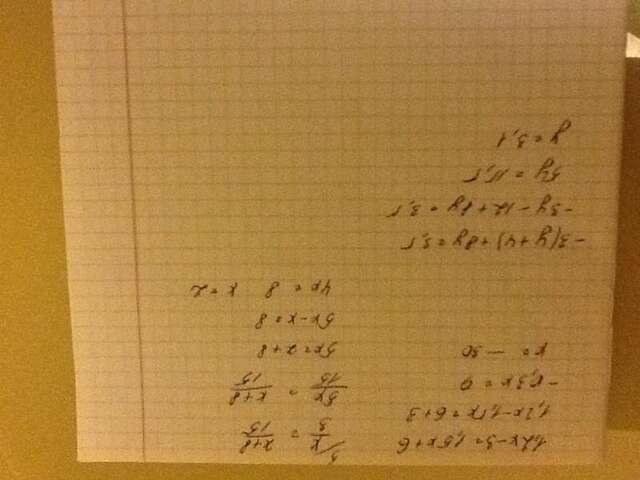 1,2x-3=1,5x+6
1,2x-1,5x=6+3
-0,3x=9
x= -30
5/ x/3 = x+8/15
5x/15 = x+8/15
5x=x+8
5x-x=8
4x=8 x=2
-3(y+4)+8y=3,5
-3y-12+8y=3,5
5y=15,5
y=3,1